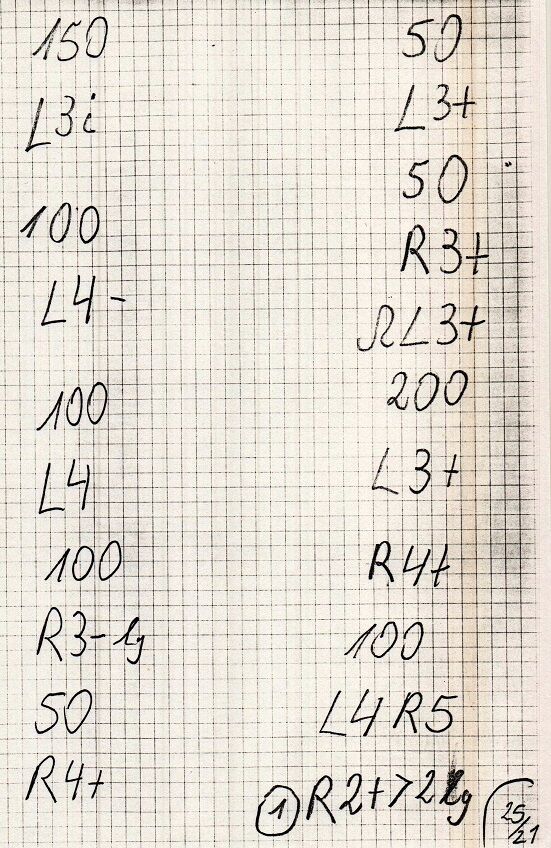 150
L3i
100
L4-
100
L4
100
R3-lg
50
R4+
50
L3+
50
R3+
ΩL3+
200
L3+
R4+
100
L4R5
① R2+>2lg
25/21